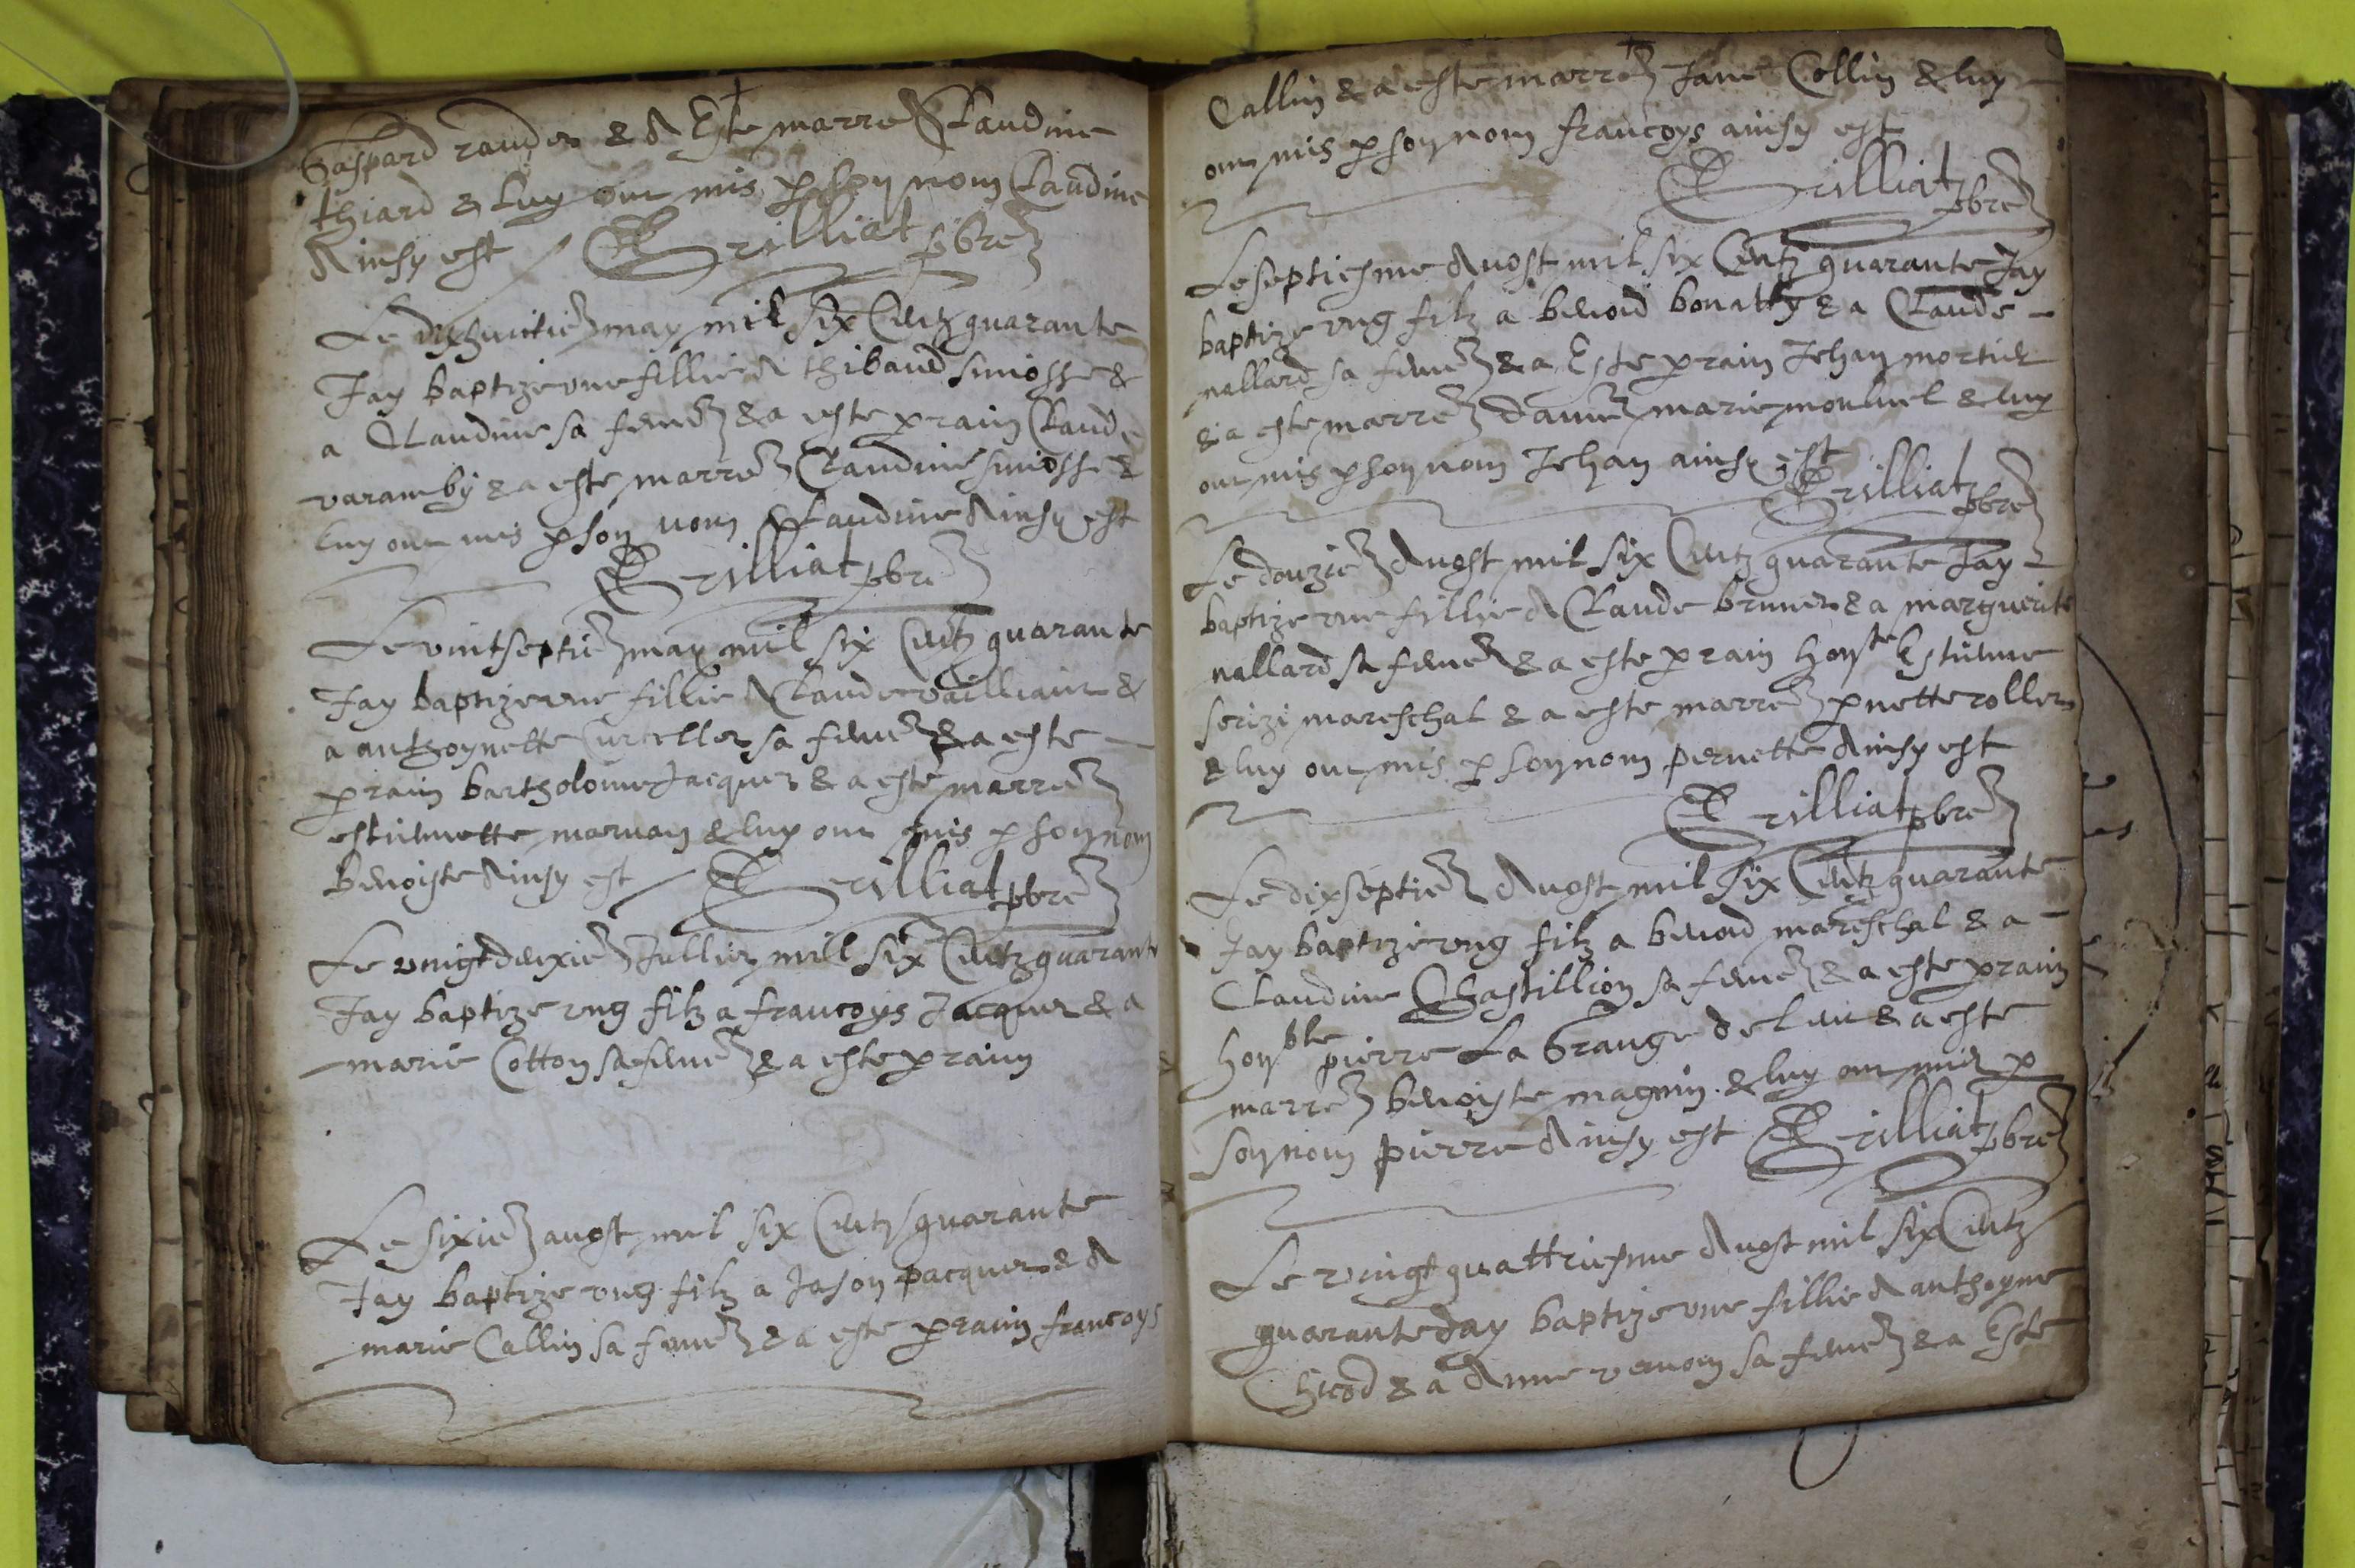 Gaspard randet & A Este marre Claudine
thiard & luy ont mis p son nom Claudine
Ainsy est Grilliat pbre
Le dixhuictie may mil six Centz quarante
Jay baptize une fillie A thibaud simosse &
a Claudine sa feme & a este prain Claude
varamby & a este marre Claudine simosse &
luy ont mis p son nom Claudine Ainsy est
Grilliat pbre
Le vintseptie may mil six Centz quarante
Jay baptize une fillie A Claude vailliant &
a anthoynette Curtellet sa feme & a este
prain bartholome Jacquet & a este marre
estiennette marvan & luy ont mis p son nom
Benoiste Ainsy est Grilliat pbre
Le vingt deuxie Jullet mill six Centz quarante
Jay baptize ung filz a francoys Jacquet & a
marie Cotton sa feme & a este prain
Le sixie auost mil six Centz quarante
Jay baptize ung filz a Jason pacquet & A
marie Callin sa feme & a este prain francoys
Callin & a este marre Jane Collin & luy
ont mis p son nom francoys ainsy est
Grilliat pbre
Le septiesme Auost mil six Centz quarante Jay
baptize ung filz a benoid bonatty & a Claude
nallard sa feme & a Este prain Jehan mortier
& a este marre dame marie monluel & luy
ont mis p son nom Jehan ainsy est
Grilliat pbre
Le douzie Auost mil six Centz quarante Jay
baptize une fillie A Claude brunet & a marguerite
nallard sa feme & a este prain honste Estienne
serizi mareschal & a este marre pnette rollet
& luy ont mis p son nom pernette Ainsy est
Grilliat pbre
Le dixseptie Auost mil six Centz quarante
Jay baptize ung filz a benoid mareschal & a
Claudine Chastillion sa feme & a este prain
honble pierre La Grange & a este
marre benoiste magnin & luy ont mis p
son nom pierre Ainsy est Grilliat pbre
Le vingt quattriesme Auost mil six Centz
quarante Jay baptize une fillie A anthoyne
Chicod & a Anne vernon sa feme & a Este